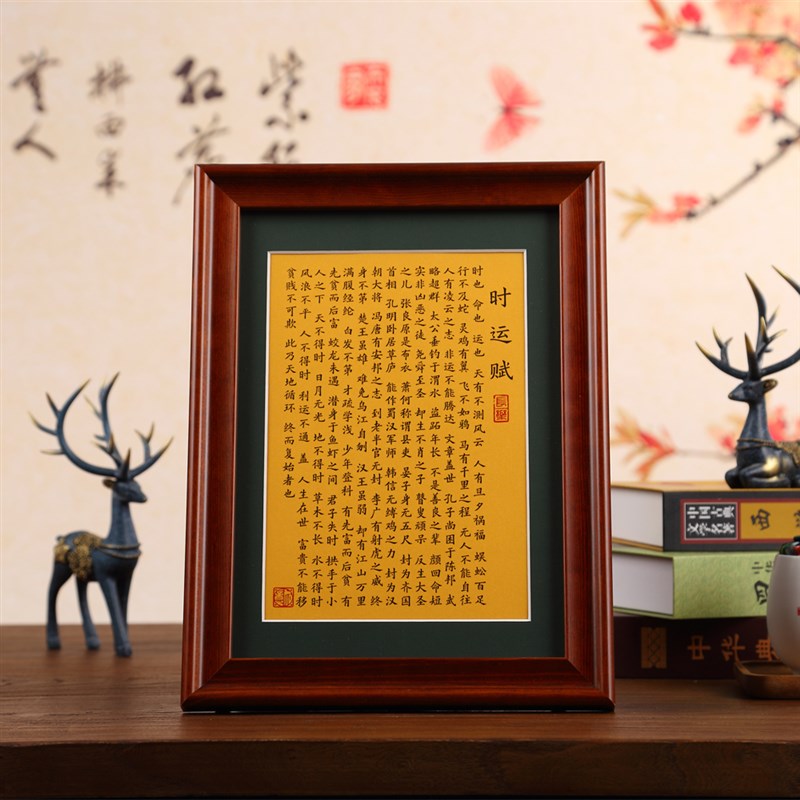 时运赋
时也 命也 运也 天有不测风云 人有旦夕祸福 蜈蚣百足
行不及蛇 灵鸡有翼 飞不如鸦 马有千里之程 无人不能自往
人有凌云之志 非运不能腾达 文章盖世 孔子尚困于陈邦 武
略超群 太公垂钓于渭水 盗跖年长 不是善良之辈 颜回命短
实非凶恶之徒 尧舜至圣 却生不肖之子 瞽叟顽呆 反生大圣
之儿 张良原是布衣 萧何称谓县吏 晏子身无五尺 封为齐国
首相 孔明卧居草庐 能作蜀汉军师 韩信无缚鸡之力 封为汉
朝大将 冯唐有安邦之志 到老半官无封 李广有射虎之威 终
身不第 楚王虽雄 难免乌江自刎 汉王虽弱 却有江山万里
满腹经纶 白发不第 才疏学浅 少年登科 有先富而后贫 有
先贫而后富 蛟龙未遇 潜身于鱼虾之间 君子失时 拱手于小
人之下 天不得时 日月无光 地不得时 草木不长 水不得时
风浪不平 人不得时 利运不通 盖 人生在世 富贵不能移
贫贱不可欺 此乃天地循环 终而复始者也
紫
红
拂面来
人
中国古典
文学名著
西
四
中华典